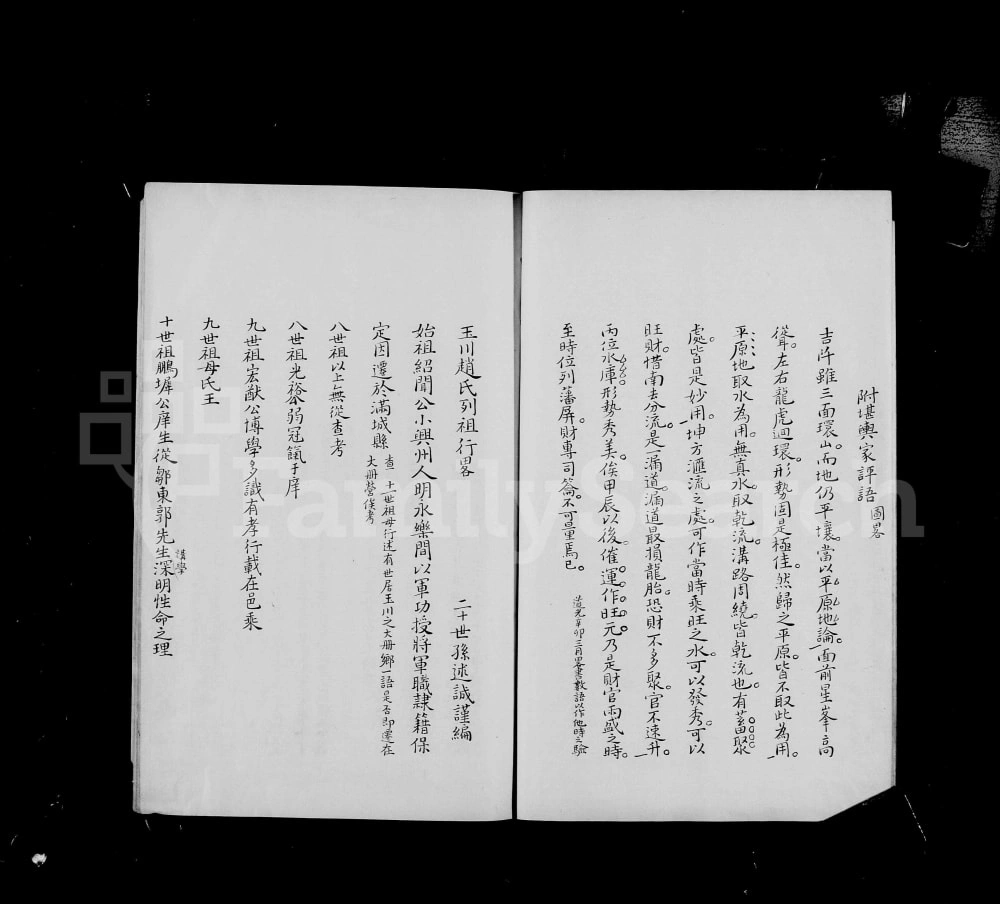 附堪輿家評語 圖畧
吉阡雖三面環山。而地仍平壤。當以平原地論。面前星峯高
聳。左右龍虎迴環。形勢固是極佳。然歸之平原。皆不取此為用。
平原地取水為用。無真水。取乾流。溝路周繞。皆乾流也。有蓄聚
處。皆是妙用。坤方滙流之處。可作當時乘旺之水。可以發秀。可以
旺財。惜南去分流。是一漏道。漏道最損龍胎。恐財不多聚。官不速升。
丙位水庫。形勢秀美。俟甲辰以後。催運作旺元。乃是財官兩盛之時。
至時位列藩屏。財專司籥。不可量焉已。
道光辛卯三月畧書數語以作他時之驗
玉川趙氏列祖行畧
二十世孫述誠謹編
始祖紹聞公小興州人明永樂間以軍功授將軍職隸籍保
定因遷於滿城縣 查十一世祖母行述有世居玉川之大冊鄉一語是否即遷在
大冊營俟考
八世祖以上無從查考
八世祖光裕弱冠餼于庠
九世祖宏猷公博學多識有孝行載在邑乘
九世祖母氏王
十世祖鵬墀公庠生從鄒東郭先生講學深明性命之理
FamilySearch